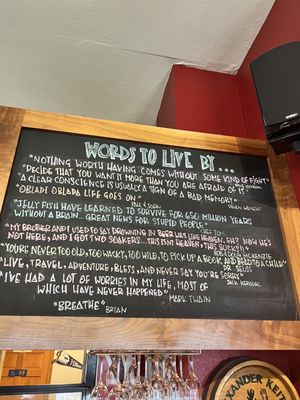 WORDS TO LIVE BY...
"NOTHING WORTH HAVING COMES WITHOUT SOME KIND OF FIGHT"
"DECIDE THAT YOU WANT IT MORE THAN YOU ARE AFRAID OF IT"
"A CLEAR CONSCIENCE IS USUALLY A SIGN OF A BAD MEMORY"
"OBLADI OBLADA LIFE GOES ON"
"JELLY FISH HAVE LEARNED TO SURVIVE FOR 650 MILLION YEARS
WITHOUT A BRAIN... GREAT NEWS FOR STUPID PEOPLE"
"MY BROTHER AND I USED TO SAY DROWNING IN BEER WAS LIKE HEAVEN, EH? NOW HE'S
NOT HERE, AND I GOT TWO SOAKERS... THIS ISN'T HEAVEN THIS SUCKS!"
BOB & DOUG MCKENZIE
"YOU'RE NEVER TOO OLD, TOO WACKY, TOO WILD, TO PICK UP A BOOK AND READ TO A CHILD"
DR. SEUSS
"LIVE, TRAVEL, ADVENTURE, BLESS, AND NEVER SAY YOU'RE SORRY"
JACK KEROUAC
"I'VE HAD A LOT OF WORRIES IN MY LIFE, MOST OF
WHICH HAVE NEVER HAPPENED"
MARK TWAIN
"BREATHE" BRIAN
ALEXANDER KEITH